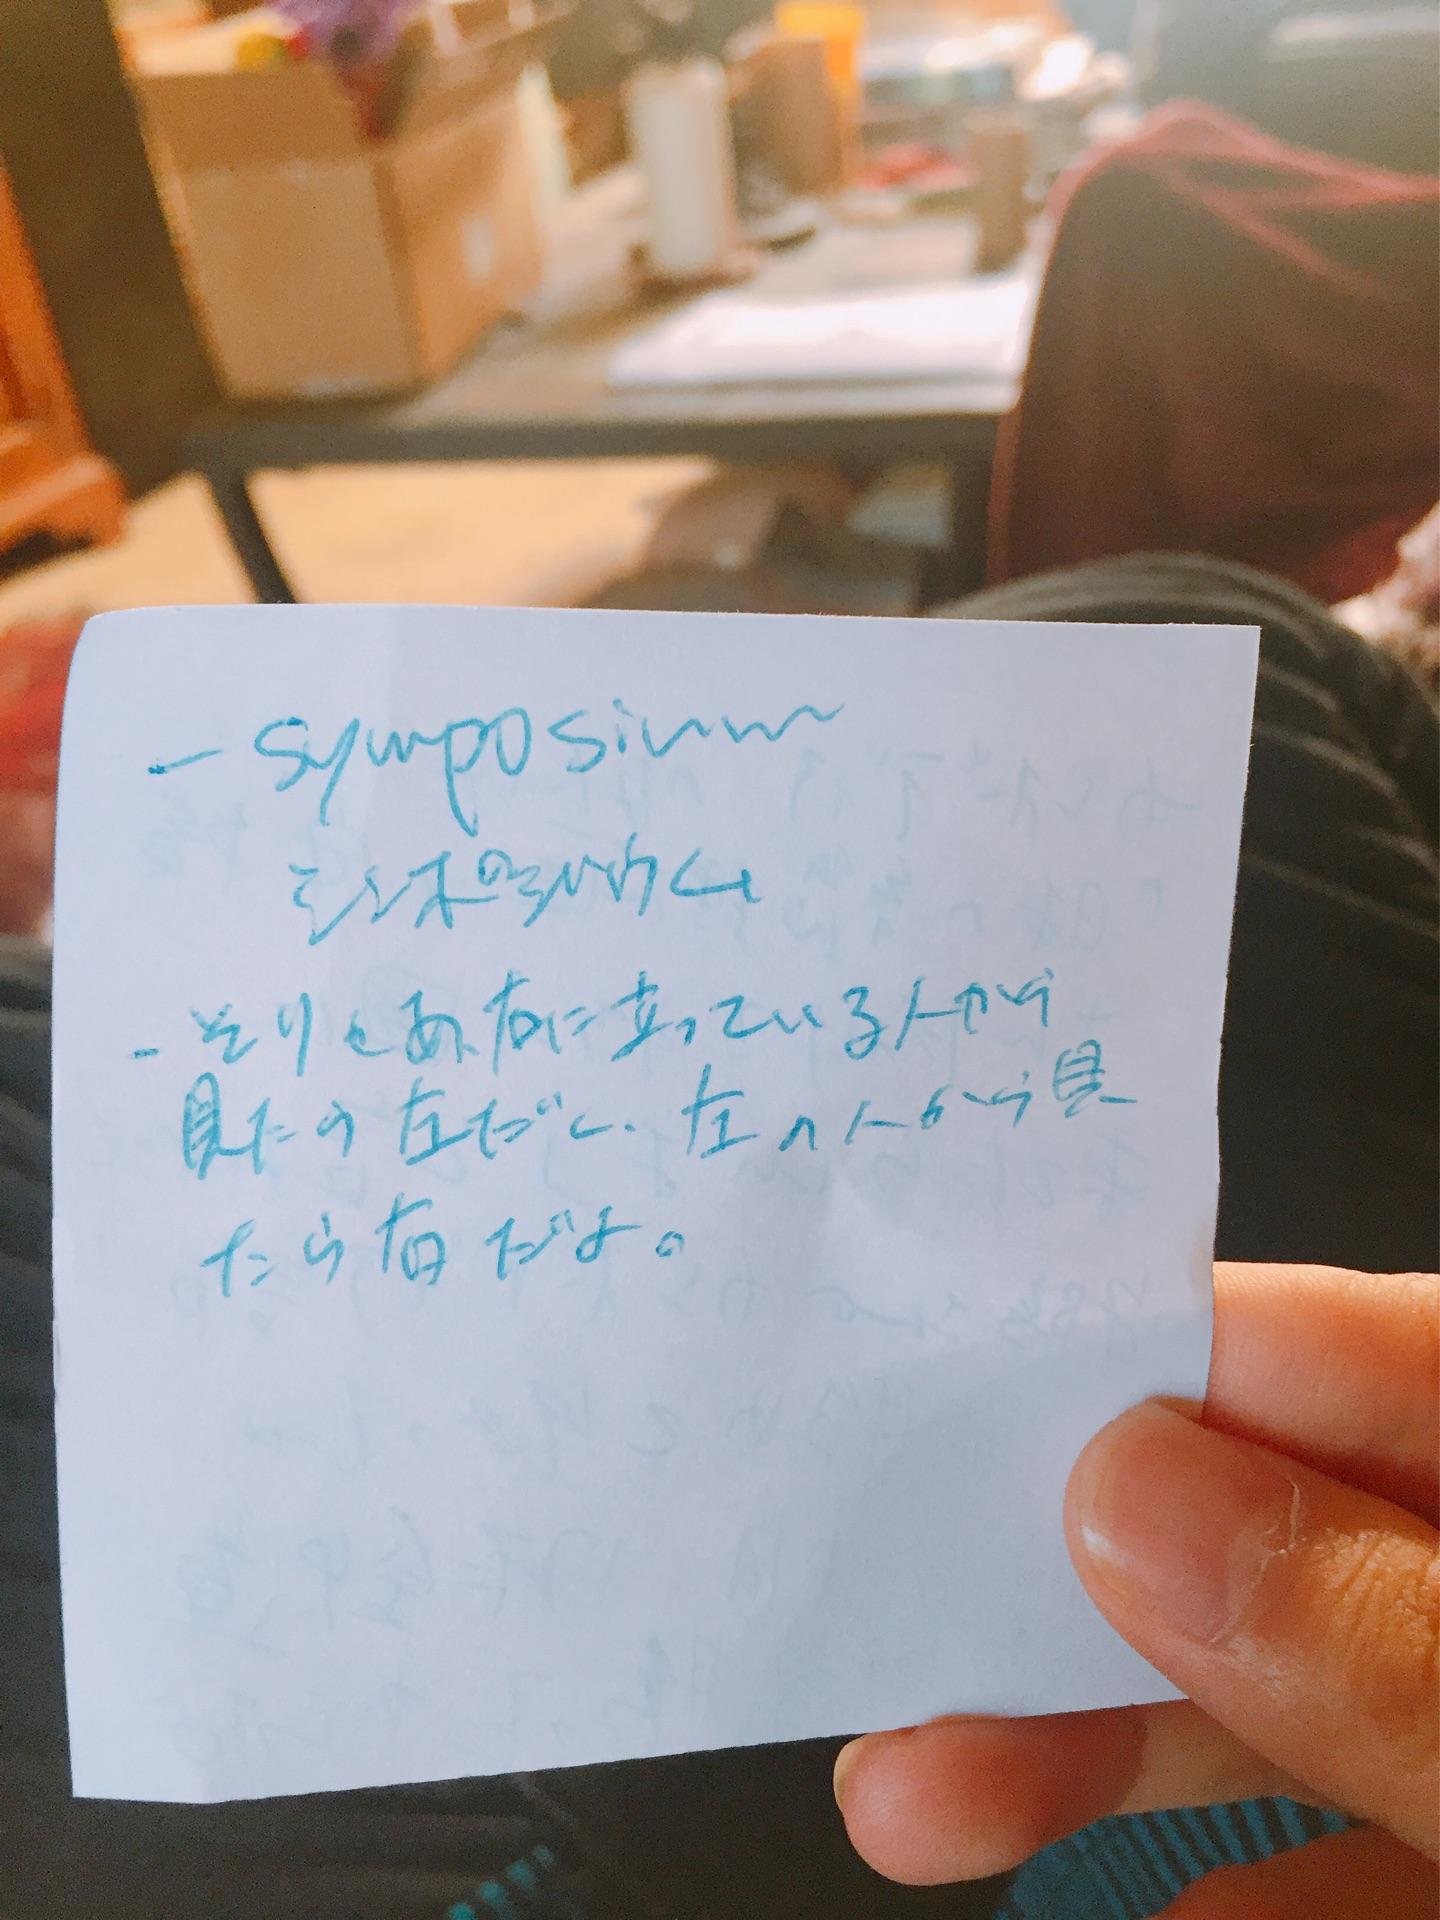 - symposium
シンポジウム
- そりゃあ、右に立っている人から
見たら左だし、左の人から見
たら右だよ。